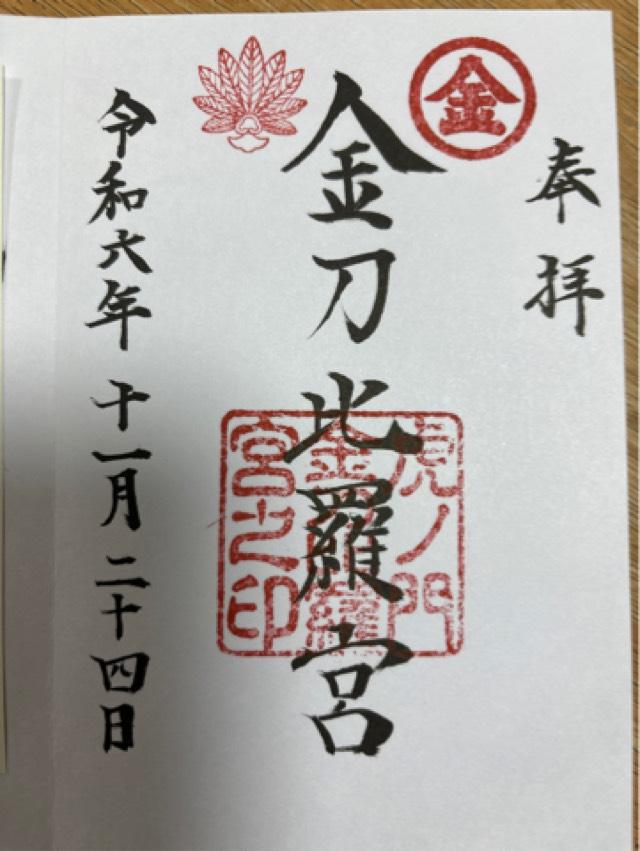 奉拝
金
金刀比羅宮
虎ノ門
金刀比羅
宮之印
令和六年十一月二十四日